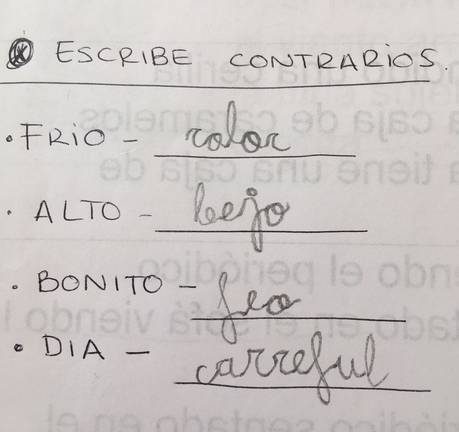 ESCRIBE CONTRARIOS.
· FRIO - calor
· ALTO - bejo
· BONITO - feo
· DIA - carreful